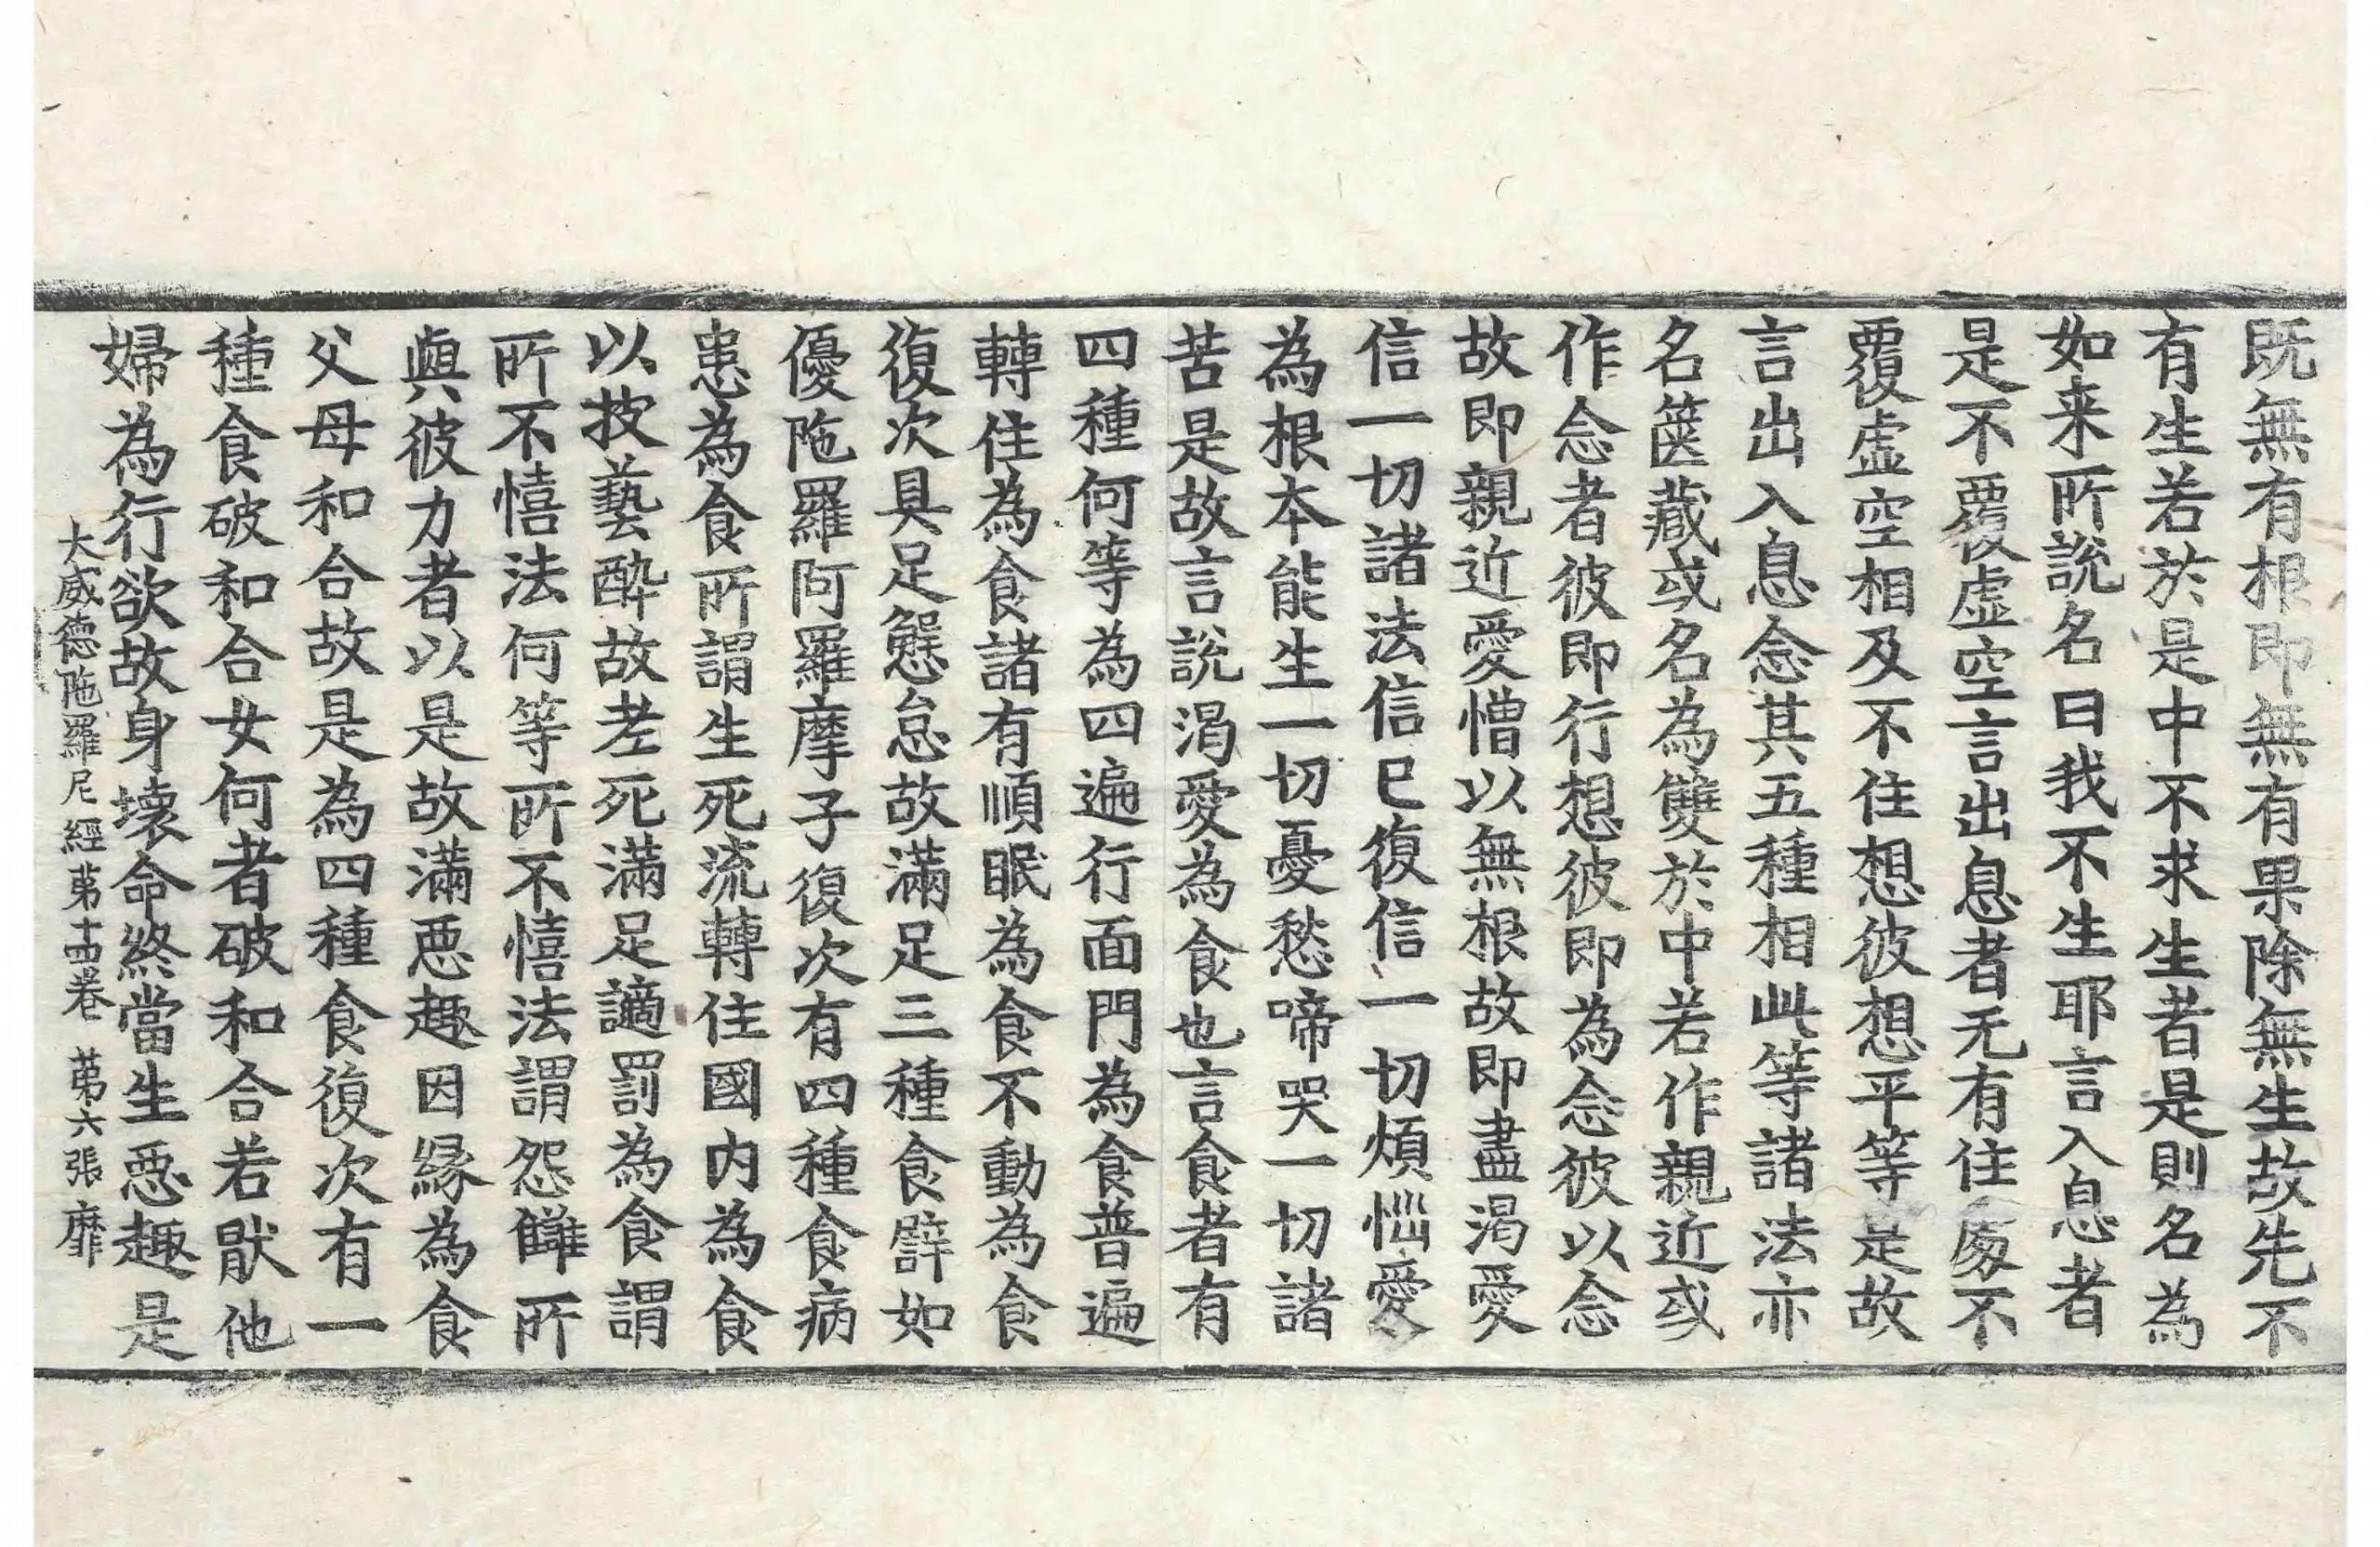 既無有根即無有果除無生故先不
有生若於是中不求生者是則名為
如来所說名曰我不生耶言入息者
是不覆虛空言出息者无有住處不
覆虛空相及不住想彼想平等是故
言出入息念其五種相此等諸法亦
名篋藏或名為雙於中若作親近或
作念者彼即行想彼即為念彼以念
故即親近愛憎以無根故即盡渴愛
信一切諸法信已復信一切煩惱愛
為根本能生一切憂愁啼哭一切諸
苦是故言說渴愛為食也言食者有
四種何等為四遍行面門為食普遍
轉住為食諸有順眠為食不動為食
復次具足懈怠故滿足三種食譬如
優陁羅阿羅摩子復次有四種食病
患為食所謂生死流轉住國內為食
以技藝酔故老死滿足讁罰為食謂
所不憘法何等所不憘法謂怨讎所
與彼力者以是故滿惡趣因緣為食
父母和合故是為四種食復次有一
種食破和合女何者破和合若猒他
婦為行欲故身壞命終當生惡趣是
大威德陁羅尼經第十四卷 第六張 靡